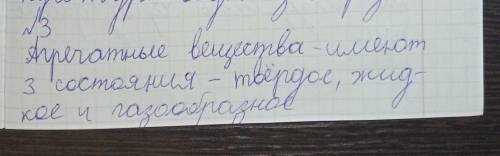 №3
Агрегатные вещества - имеют
3 состояния - твёрдое, жид-
кое и газообразное